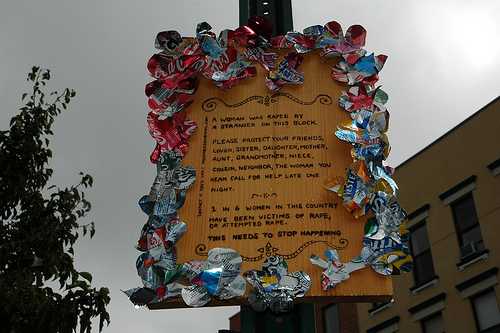 A WOMAN WAS RAPED BY
A STRANGER ON THIS BLOCK.
PLEASE PROTECT YOUR FRIENDS,
LOVER, SISTER, DAUGHTER, MOTHER,
AUNT, GRANDMOTHER, NIECE,
COUSIN, NEIGHBOR, THE WOMAN YOU
HEAR CALL FOR HELP LATE ONE
NIGHT.
1 IN 6 WOMEN IN THIS COUNTRY
HAVE BEEN VICTIMS OF RAPE,
OR ATTEMPTED RAPE.
THIS NEEDS TO STOP HAPPENING